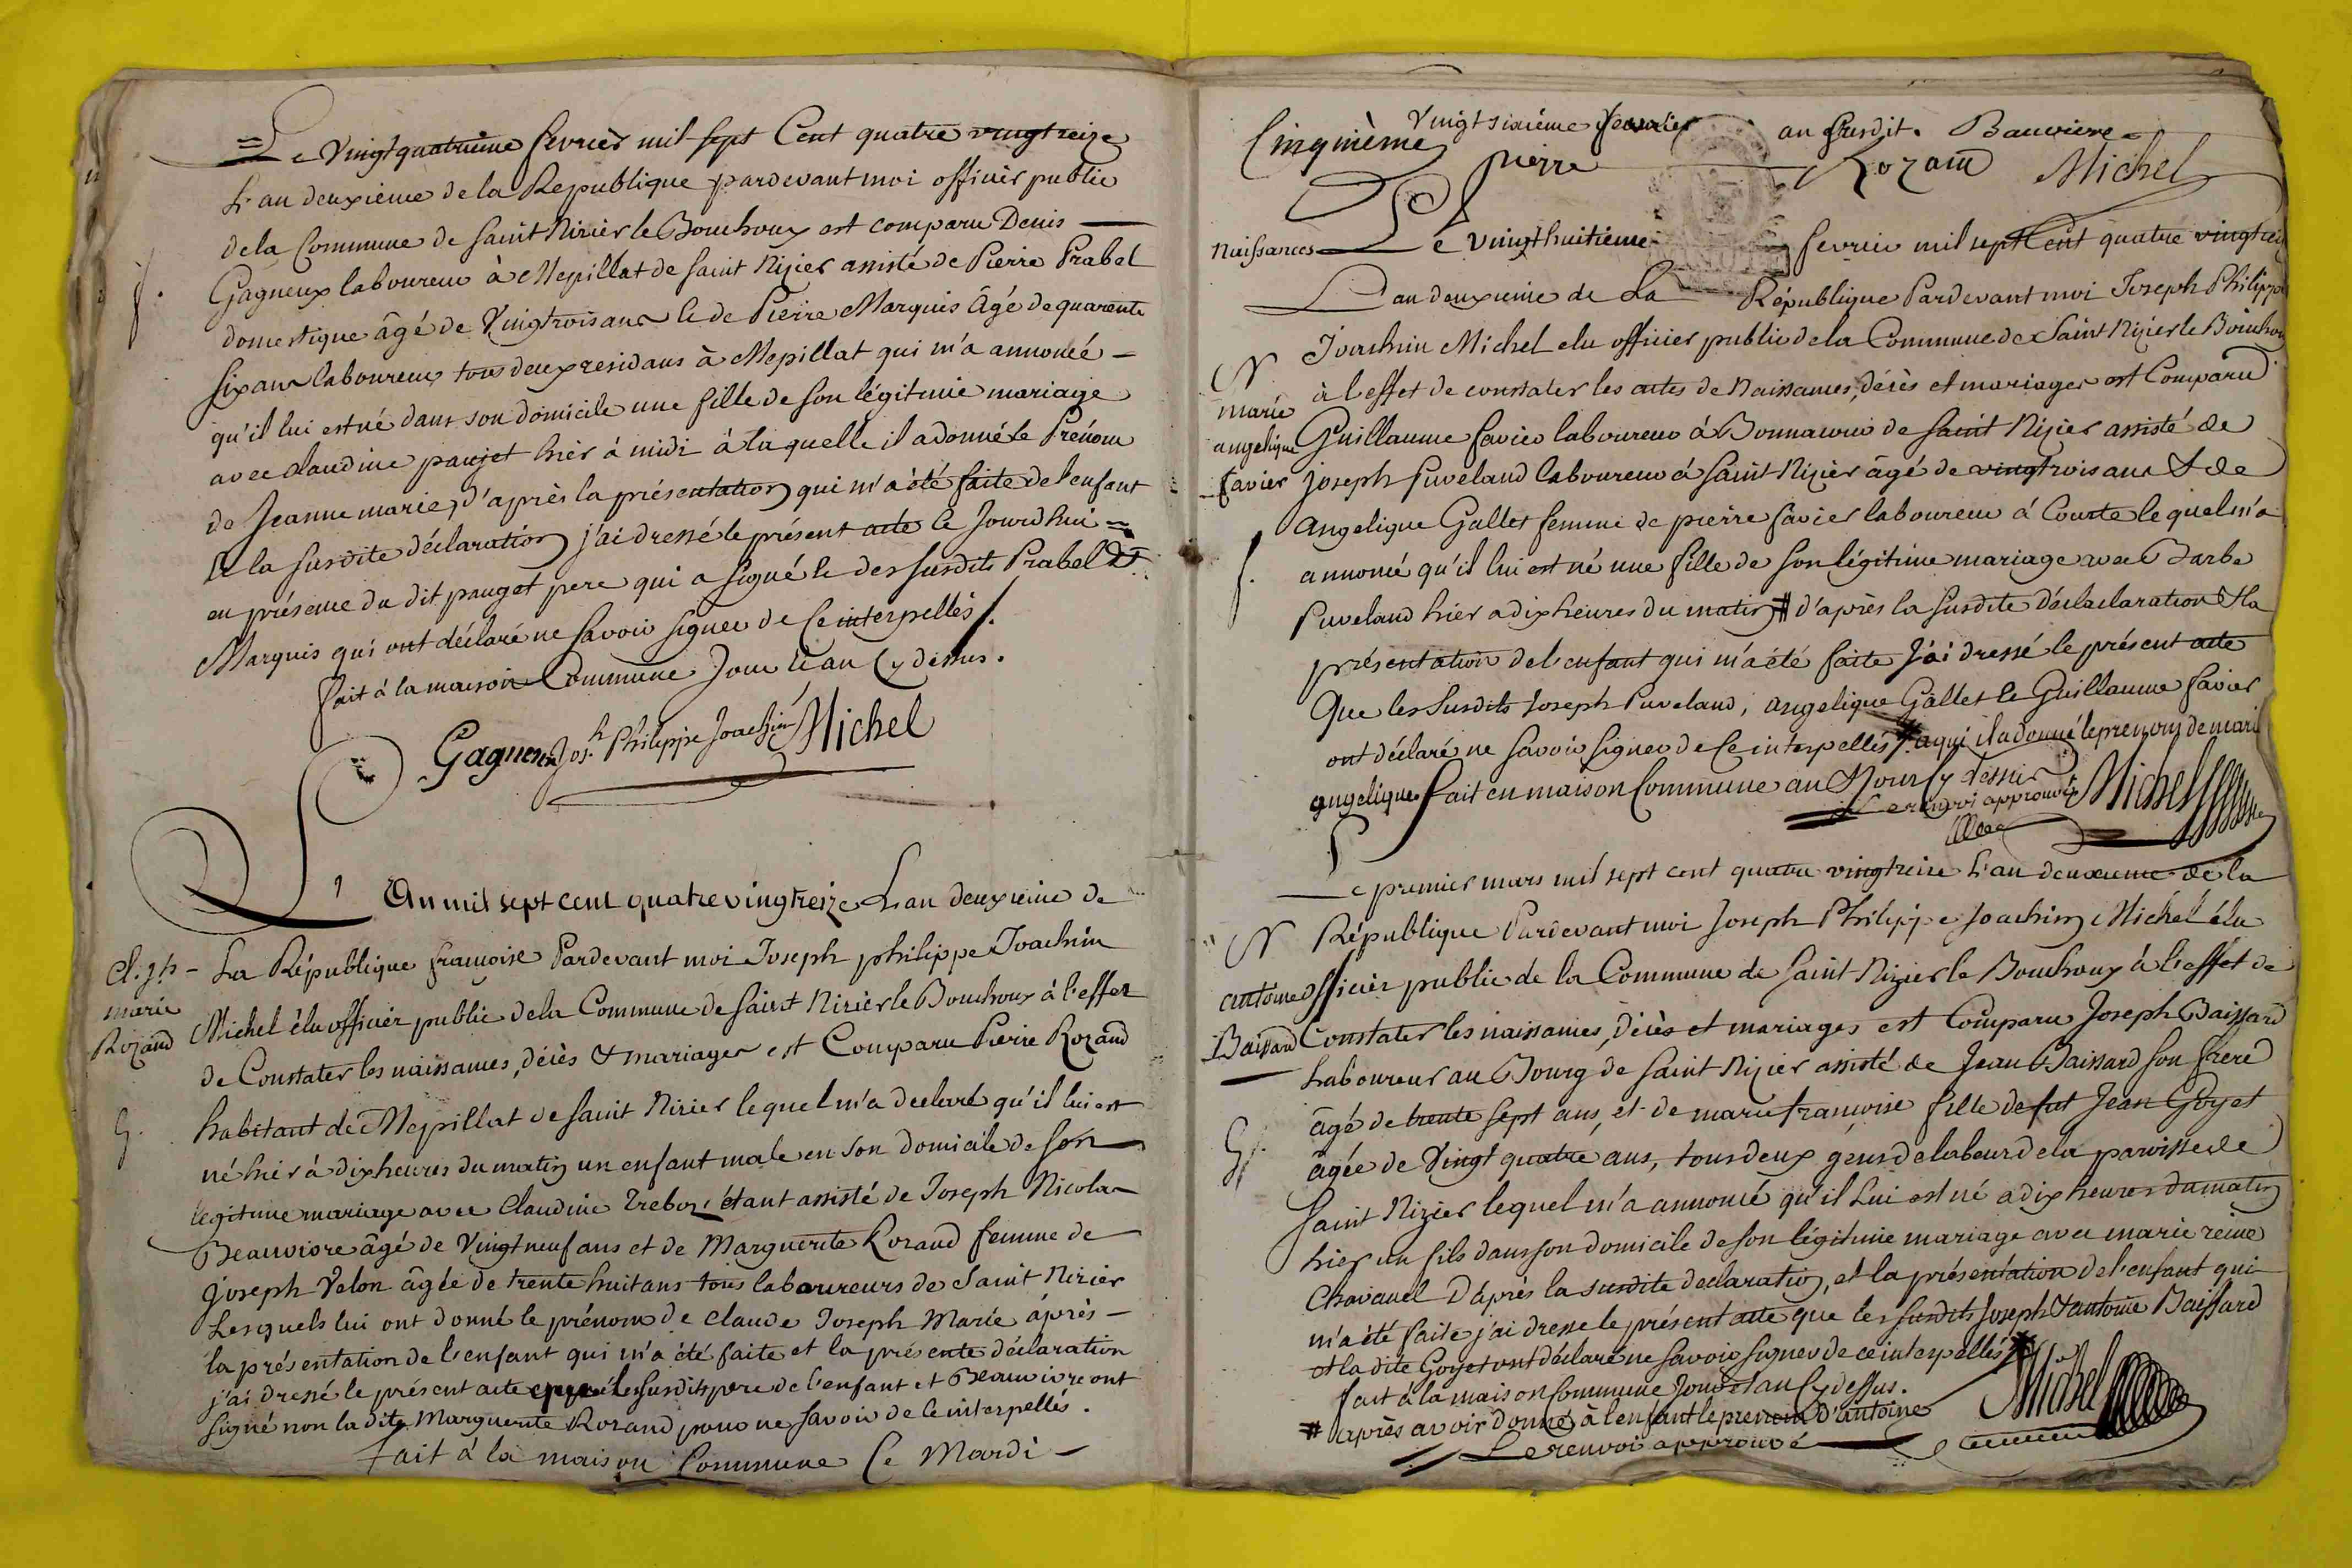 Le Vingtquatrieme fevrier mil sept Cent quatre vingttreize
L'an deuxieme de la Republique pardevant moi officier public
de la Commune de saint Nizier le Bouchoux est comparu Denis
Gagneux laboureur à Mepillat de saint Nizier assisté de Pierre Prabel
domestique âgé de Vingtrois ans & de Pierre Marquis âgé de quarente
six ans laboureur tous deux residans à Mepillat qui m'a annoncé
qu'il lui est né dans son domicile une fille de son légitime mariage
avec claudine paujet hier à midi à laquelle il a donné le Prénom
de Jeanne marie, d'après la présentation qui m'a été faite de l'enfant
& la susdite déclaration j'ai dressé le présent acte ce Jourd'hui =
en présence du dit pauget pere qui a signé & des susdits Prabel &
Marquis qui ont déclaré ne savoir signer de ce interpellés/.
fait à la maison Commune Jour & an Cy dessus.
Gagneux Jos.h Philippe Joachin Michel
L'An mil sept cent quatre vingtreize L'an deuxieme de
Cl. Jh
marie
Rozand
La République françoise Pardevant moi Joseph philippe Joachim
Michel élu officier public de la Commune de saint Nizier le Bouchoux à l'effet
de Constater les naissances, décès & mariages est Comparu Pierre Rozand
habitant de Mepillat de saint Nizier lequel m'a declaré qu'il lui est
né hier à dix heures du matin un enfant male en son domicile de son
légitime mariage avec Claudine Treboz étant assisté de Joseph Nicolas
Beauviore âgé de Vingt neuf ans et de Marguerite Rozand femme de
Joseph Velon âgée de trente huit ans tous laboureurs de saint Nizier
Lesquels lui ont donné le prénom de claude Joseph Marie après
la présentation de l'enfant qui m'a été faite et la présente déclaration
j'ai dressé le présent acte les susdits pere de l'enfant et Beauvivre ont
signé non la dite Marguerite Rozand pour ne savoir de ce interpellés.
fait à la maison Commune Ce Mardi
Vingt sixième fevrier an susdit. Bauviere
Cinqinième pierre Rozand Michel
Naissances
Le vingt huitieme fevrier mil sept Cent quatre vingt
L'an deuxieme de La République Pardevant moi Joseph Philippe
Joachim Michel élu officier public de la Commune de Saint Nizier le Bouchou
N
marie
angelique
favier
à l'effet de constater les actes de Naissances, décès et mariages est Comparu
Guillaume favier laboureur à de saint Nizier assisté de
joseph Puveland laboureur à saint Nizier âgé de vingtrois ans & de
Angelique Gallet femme de pierre favier laboureur à Courte lequel m'a
annoncé qu'il lui est né une fille de son légitime mariage avec Barbe
Puveland hier a dix heures du matin # d'après la susdite déclaclaration & la
présentation de l'enfant qui m'a été faite J'ai dressé le présent acte
Que les susdits Joseph Puveland, angelique Gallet & Guillaume favier
ont déclaré ne savoir signer de ce interpellés # a qui il a donné le prenom de mari
angelique fait en maison Commune an & Jour Cy dessus
Le renvoi approuvé Michel
Le premier mars mil sept cent quatre vingtreize L'an deuxieme de la
N
antoine
Baissard
République Pardevant moi Joseph Philippe Joachim Michel élu
officier public de la Commune de Saint Nizier le Bouchoux à l'effet de
Constater les naissances, décès et mariages est Comparu Joseph Baissard
Laboureur au Bourg de Saint Nizier assisté de Jean Baissard son frere
âgé de trente sept ans, et de marie françoise fille de fut Jean Goyet
âgée de Vingt quatre ans, tous deux gens de labeur de la paroisse de
Saint Nizier lequel m'a annoncé qu'il Lui est né a dix heures du matin
hier un fils dans son domicile de son légitime mariage avec marie reine
Chavanel D'après la susdite declaration, et la présentation de l'enfant qui
m'a été faite j'ai dressé le présent acte que les susdits Joseph & antoine Baissard
et la dite Goyet ont déclaré ne savoir signer de ce interpellés #
fait à la maison Commune Jour et an Cy dessus.
# après avoir donné à l'enfant le prenom d'antoine Michel
Le renvoi approuvé